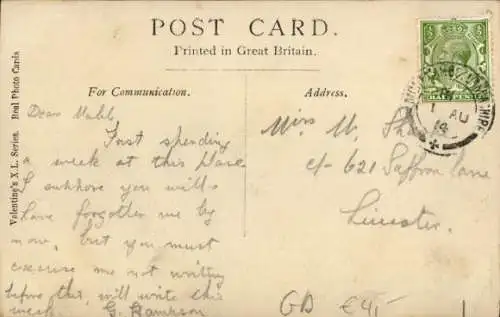 POST CARD.
Printed in Great Britain.
For Communication.
Address.
Valentine's X.L. Series. Real Photo Cards
Dear Mabel
Just spending
a week at this place
I suppose you will
have forgotten me by
now, but you must
excuse me not writing
before this, will write this
week. G.
Miss M.
c/- 621 Saffron Lane
Leicester.
1 AU
14
GD €4,-